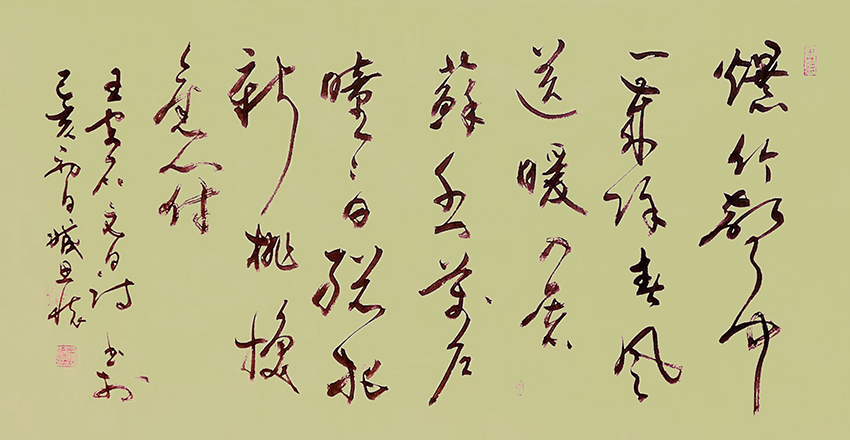 爆竹聲中
一歲除春風
送暖入屠
蘇千门萬户
曈〻日總把
新桃換
舊符
王安石元日诗书於
己亥初日